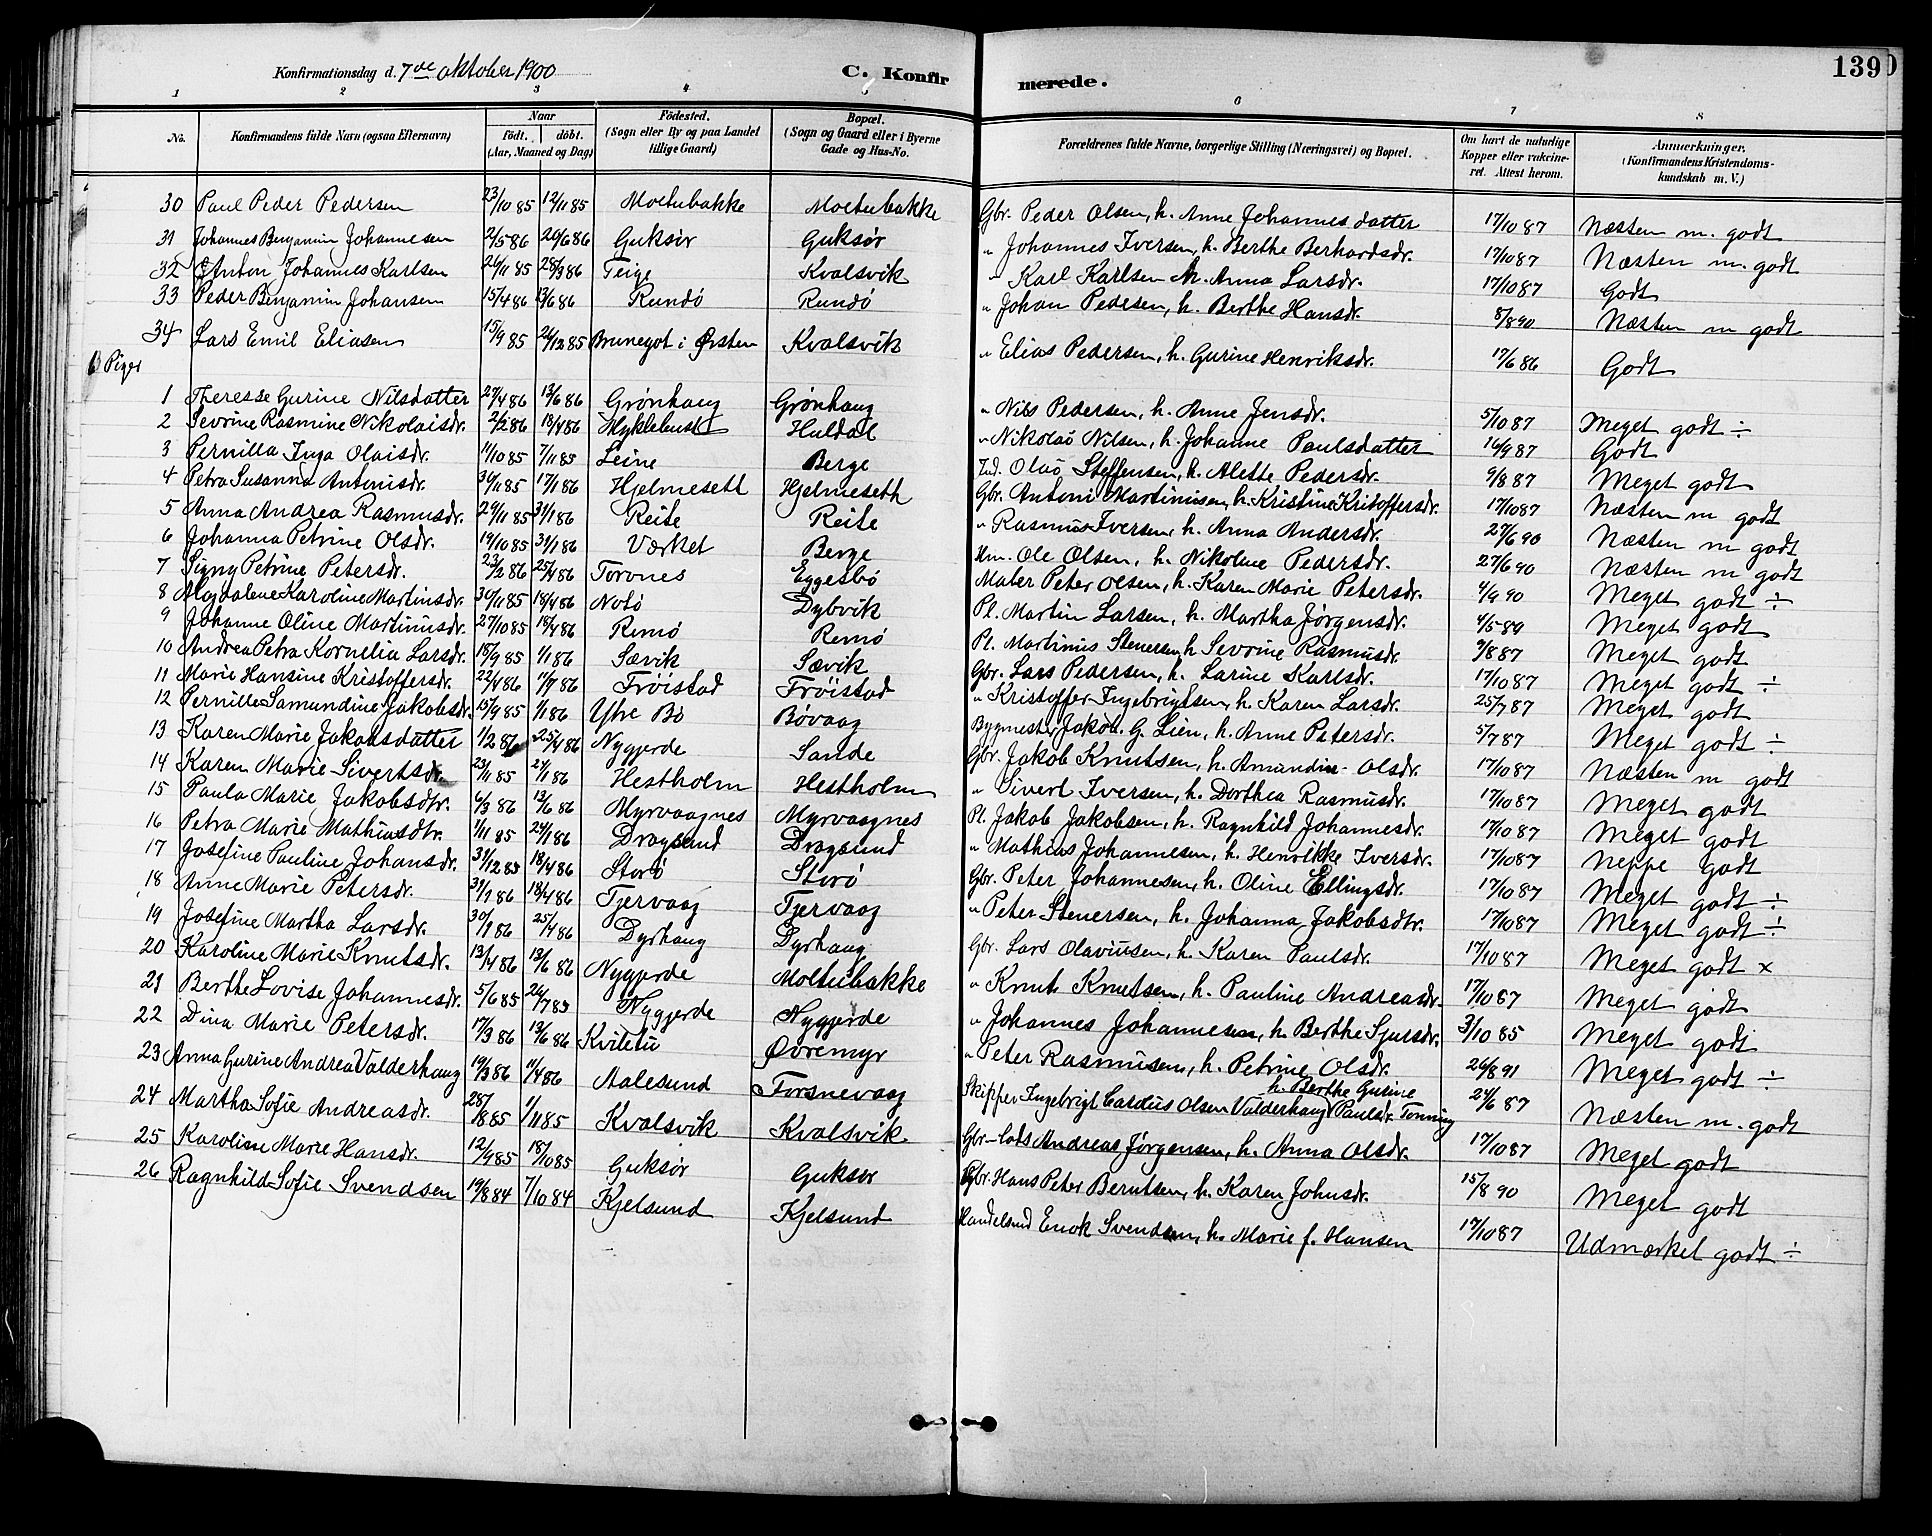 Konfirmationsdag d. 7de oktober 1900 C. Konfirmerede. 139
1 2 3 4 5 6 7 8
No. Konfirmandens fulde Navn (ogsaa Efternavn) Naar födt. döbt. (Aar, Maaned og Dag) Födested. (Sogn eller By og paa Landet tillige Gaard) Bopæl. (Sogn og Gaard eller i Byerne Gade og Hus-No. Forældrenes fulde Navne, borgerlige Stilling (Næringsvei) og Bopæl. Om havt de naturlige Kopper eller vakcineret. Attest herom. Anmærkninger. (Konfirmandens Kristendomskundskab m. V.)
30 Paul Peder Pedersen 23/10 85 12/11 85 Moltubakke Moltubakke Gbr. Peder Olsen, h. Anne Johannesdatter 17/10 87 Næsten m. godt
31 Johannes Benjamin Johannesen 2/5 86 20/6 86 Guksør Guksør " Johannes Iversen, h. Berthe Berhardsdr. 17/10 87 Næsten m. godt
32 Anton Johannes Karlsen 26/11 85 28/3 86 Teige Kvalsvik " Karl Karlsen h. Anna Larsdr. 17/10 87 Godt
33 Peder Benjamin Johansen 15/4 86 13/6 86 Rundö Rundö " Johan Pedersen, h. Berthe Hansdr. 8/8 90 Næsten m godt
34 Lars Emil Eliasen 15/9 85 26/12 85 Brunegot i Ørsten Kvalsvik " Elias Pedersen, h. Gurine Henriksdr. 17/6 86 Godt
B Piger
1 Therese Gurine Nilsdatter 27/4 86 13/6 86 Grönhaug Grönhaug " Nils Pedersen, h. Anne Jensdr. 5/10 87 Meget godt ÷
2 Sevrine Rasmine Nikolaisdr. 2/2 86 18/4 86 Myklebust Huldal " Nikolai Nilsen, h. Johanne Paulsdatter 16/9 87 Godt
3 Pernilla Inga Olaisdr. 11/10 85 7/11 85 Leine Berge Ind. Olai Steffensen, h. Alette Pedersdr. 9/8 87 Meget godt
4 Petra Susanna Antonisdr. 30/11 85 17/1 86 Hjelmesett Hjelmeseth Gbr. Antoni Martinusen, h. Kristine Kristoffersdr. 17/10 87 Næsten m godt
5 Anna Andrea Rasmusdr. 29/11 85 31/1 86 Reite Reite " Rasmus Iversen, h. Anna Andersdr. 27/6 90 Næsten m godt
6 Johanna Petrine Olsdr. 19/10 85 31/1 86 Værket Berge Hm. Ole Olsen, h. Nikoline Pedersdr. 27/6 90 Næsten m godt
7 Signy Petrine Petersdr. 23/2 86 25/4 86 Torvnes Eggesbö Maler Peter Olsen, h. Karen Marie Petersdr. 4/9 90 Meget godt ÷
8 Magdalene Karoline Martinsdr. 30/11 85 18/4 86 Notö Dybvik Pl. Martin Larsen, h. Martha Jørgensdr. 4/5 89 Meget godt
9 Johanne Oline Martinusdr. 27/10 85 18/4 86 Remö Remö Pl. Martinus Stenersen, h. Sevrine Rasmusdr. 9/8 87 Meget godt
10 Andrea Petra Kornelia Larsdr. 18/9 85 1/1 86 Sævik Sævik Gbr. Lars Pedersen, h. Larine Karlsdr. 17/10 87 Meget godt ÷
11 Marie Hansine Kristoffersdr. 22/4 86 11/7 86 Tröistad Fröistad " Kristoffer Ingebrigtsen, h. Karen Larsdr. 25/7 87 Meget godt
12 Pernille Samundine Jakobsdr. 15/9 85 1/1 86 Ytre Bö Bövaag Bygmester Jakob G. Lien, h. Anne Petersdr. 5/7 87 Meget godt ÷
13 Karen Marie Jakobsdatter 1/2 86 25/4 86 Nygjerde Sande Gbr. Jakob Knutsen, h. Amundine Olsdr. 17/10 87 Næsten m godt
14 Karen Marie Sivertsdr. 23/11 85 21/1 86 Hestholm Hestholm " Sivert Iversen, h. Dorthea Rasmusdr. 17/10 87 Meget godt
15 Paula Marie Jakobsdtr. 6/3 86 13/6 86 Myrvaagnes Myrvaagnes Pl. Jakob Jakobsen, h. Ragnhild Johannesdr. 17/10 87 Meget godt
16 Petra Marie Mathiasdtr. 1/11 85 24/1 86 Dragsund Dragsund " Mathias Johannesen, h. Henrikke Iversdr. 17/10 87 Neppe godt
17 Josefine Pauline Johansdr. 31/12 85 18/4 86 Storö Storö Gbr. Peter Johannesen, h. Oline Ellingsdr. 17/10 87 Meget godt ÷
18 Anne Marie Petersdr. 31/1 86 18/4 86 Tjervaag Tjervaag " Peter Stenersen, h. Johanna Jakobsdtr. 17/10 87 Meget godt ÷
19 Josefine Martha Larsdr. 30/1 86 25/4 86 Dyrhaug Dyrhaug Gbr. Lars Olaviusen, h. Karen Paulsdr. 17/10 87 Meget godt x
20 Karoline Marie Knutsdr. 13/4 86 13/6 86 Nygjerde Moltubakke " Knut Knutsen, h. Pauline Andreasdr. 17/10 87 Meget godt
21 Berthe Lovise Johannesdr. 5/6 85 26/7 85 Nygjerde Nygjerde " Johannes Johannesen, h. Berthe Sjursdr. 3/10 85 Meget godt
22 Dina Marie Petersdr. 17/3 86 13/6 86 Kviteti Øvremyr " Peter Rasmusen, h. Petrine Olsdr. 26/8 91 Meget godt ÷
23 Anna Gurine Andrea Valderhaug 19/3 86 11/4 86 Aalesund Torsnevaag Skipper Ingebrigt Cardus Olsen Valderhaug h. Berthe Gurine Paulsdr. Tonning 24/6 87 Næsten m. godt
24 Martha Sofie Andreasdr. 28/8 85 1/11 85 Kvalsvik Kvalsvik Gbr-Lods Andreas Jørgensen, h. Anna Olsdr. 17/10 87 Meget godt
25 Karoline Marie Hansdr. 12/9 85 18/10 85 Guksør Guksør Gbr. Hans Peter Berntsen, h. Karen Johnsdr. 15/8 90 Meget godt
26 Ragnhild Sofie Svendsen 19/8 84 7/10 84 Kjelsund Kjelsund Handelsmd Enok Svendsen, h. Marie f. Hansen 17/10 87 Udmærket godt ÷